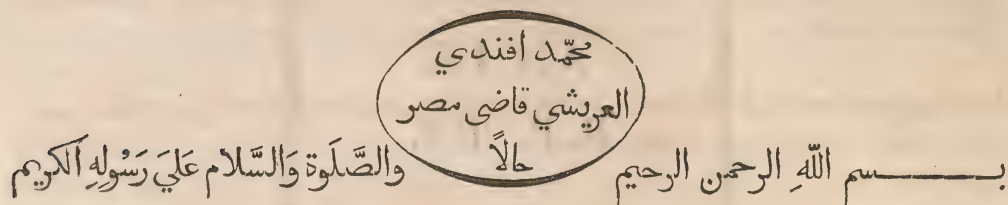 محمّد افندي
العريشي قاضى مصر
حالاً
بسم اللّٰهِ الرحمن الرحيم والصَّلَوة وَالسَّلام عَلَيَ رَسُولِهِ الكريم